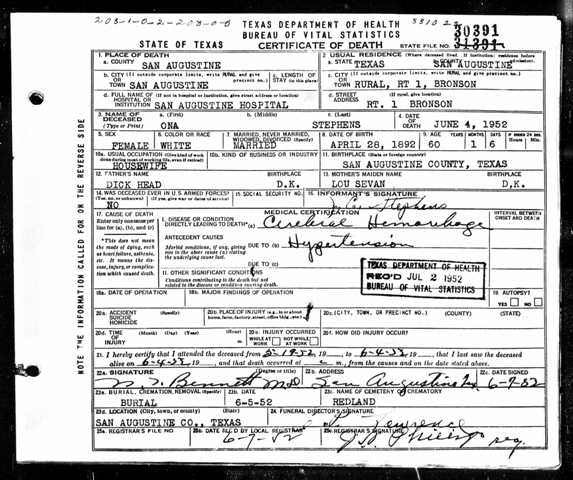 203-1-0-2-203-0-0
TEXAS DEPARTMENT OF HEALTH
BUREAU OF VITAL STATISTICS
30391
STATE OF TEXAS
CERTIFICATE OF DEATH
STATE FILE NO. 31391
1. PLACE OF DEATH
a. COUNTY
SAN AUGUSTINE
2. USUAL RESIDENCE (Where deceased lived. If institution: residence before admission).
a. STATE TEXAS
b. COUNTY SAN AUGUSTINE
b. CITY (If outside corporate limits, write RURAL and give precinct no.)
OR TOWN SAN AUGUSTINE
c. LENGTH OF STAY (in this place)
c. CITY (If outside corporate limits, write RURAL and give precinct no.)
OR TOWN RURAL, RT 1, BRONSON
d. FULL NAME OF (If not in hospital or institution, give street address or location)
HOSPITAL OR INSTITUTION SAN AUGUSTINE HOSPITAL
d. STREET ADDRESS (If rural, give location)
RT. 1 BRONSON
3. NAME OF DECEASED (Type or Print)
a. (First) ONA
b. (Middle)
c. (Last) STEPHENS
4. DATE OF DEATH JUNE 4, 1952
5. SEX FEMALE
6. COLOR OR RACE WHITE
7. MARRIED, NEVER MARRIED, WIDOWED, DIVORCED (Specify) MARRIED
8. DATE OF BIRTH APRIL 28, 1892
9. AGE YEARS 60 MONTHS 1 DAYS 6
10a. USUAL OCCUPATION (Give kind of work done during most of working life, even if retired)
HOUSEWIFE
10b. KIND OF BUSINESS OR INDUSTRY
11. BIRTHPLACE (State or foreign country)
SAN AUGUSTINE COUNTY, TEXAS
12. FATHER'S NAME BIRTHPLACE
DICK HEAD D.K.
13. MOTHER'S MAIDEN NAME BIRTHPLACE
LOU SEVAN D.K.
14. WAS DECEASED EVER IN U.S. ARMED FORCES?
(Yes, no, or unknown) (If yes, give war or dates of service)
NO
15. SOCIAL SECURITY NO.
16. INFORMANT'S SIGNATURE
Stephens
17. CAUSE OF DEATH
Enter only one cause per line for (a), (b), and (c)
MEDICAL CERTIFICATION
INTERVAL BETWEEN ONSET AND DEATH
I. DISEASE OR CONDITION DIRECTLY LEADING TO DEATH* (a) Cerebral Hemorrhage
*This does not mean the mode of dying, such as heart failure, asthenia, etc. It means the disease, injury, or complication which caused death.
ANTECEDENT CAUSES
Morbid conditions, if any, giving rise to the above cause (a) stating the underlying cause last.
DUE TO (b) Hypertension
DUE TO (c)
II. OTHER SIGNIFICANT CONDITIONS
Conditions contributing to the death but not related to the disease or condition causing death.
TEXAS DEPARTMENT OF HEALTH
REC'D JUL 2 1952
BUREAU OF VITAL STATISTICS
18a. DATE OF OPERATION
18b. MAJOR FINDINGS OF OPERATION
19. AUTOPSY?
YES NO
20a. ACCIDENT SUICIDE HOMICIDE (Specify)
20b. PLACE OF INJURY (e.g., in or about home, farm, factory, street, office bldg., etc.)
20c. (CITY, TOWN, OR PRECINCT NO.) (COUNTY) (STATE)
20d. TIME OF INJURY (Month) (Day) (Year) (Hour)
20e. INJURY OCCURRED
WHILE AT WORK NOT WHILE AT WORK
20f. HOW DID INJURY OCCUR?
21. I hereby certify that I attended the deceased from 19 to 6-4-52 19 , that I last saw the deceased
alive on 6-4-52 19 , and that death occurred at m., from the causes and on the date stated above.
22a. SIGNATURE (Degree or title)
Bennett M.D.
22b. ADDRESS
San Augustine
22c. DATE SIGNED
6-7-52
23a. BURIAL, CREMATION, REMOVAL (Specify)
BURIAL
23b. DATE
6-5-52
23c. NAME OF CEMETERY OR CREMATORY
REDLAND
23d. LOCATION (City, town, or county) (State)
SAN AUGUSTINE CO., TEXAS
24. FUNERAL DIRECTOR'S SIGNATURE
25a. REGISTRAR'S FILE NO.
25b. DATE REC'D BY LOCAL REGISTRAR
6-7-52
25c. REGISTRAR'S SIGNATURE
NOTE THE INFORMATION CALLED FOR ON THE REVERSE SIDE